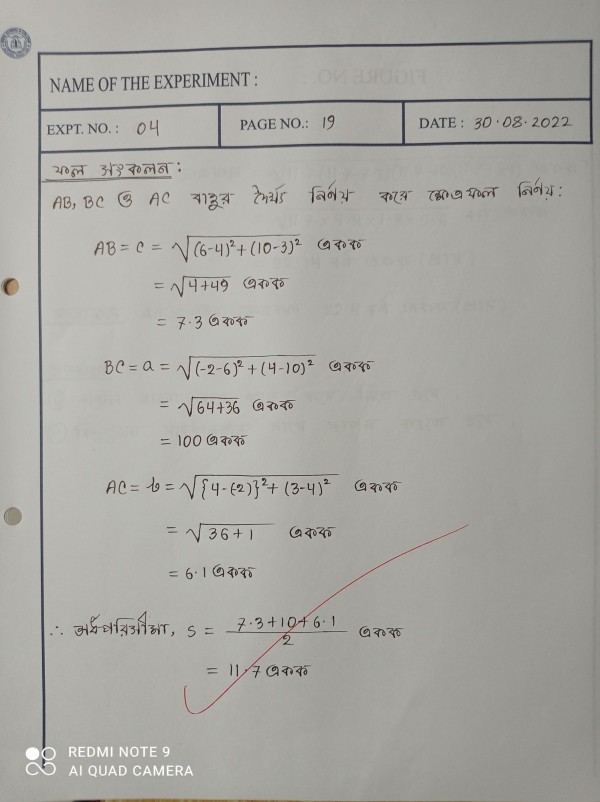 NAME OF THE EXPERIMENT :
EXPT. NO. : 04 PAGE NO.: 19 DATE : 30.08.2022
ফল সংকলন:
AB, BC ও AC বাহুর দৈর্ঘ্য নির্ণয় করে ক্ষেত্রফল নির্ণয়:
AB = c = √(6-4)²+(10-3)² একক
= √4+49 একক
= 7.3 একক
BC = a = √(-2-6)²+(4-10)² একক
= √64+36 একক
= 100 একক
AC = b = √{4-(-2)}²+(3-4)² একক
= √36+1 একক
= 6.1 একক
∴ অর্ধপরিসীমা, s = 7.3+10+6.1 / 2 একক
= 11.7 একক
REDMI NOTE 9
AI QUAD CAMERA